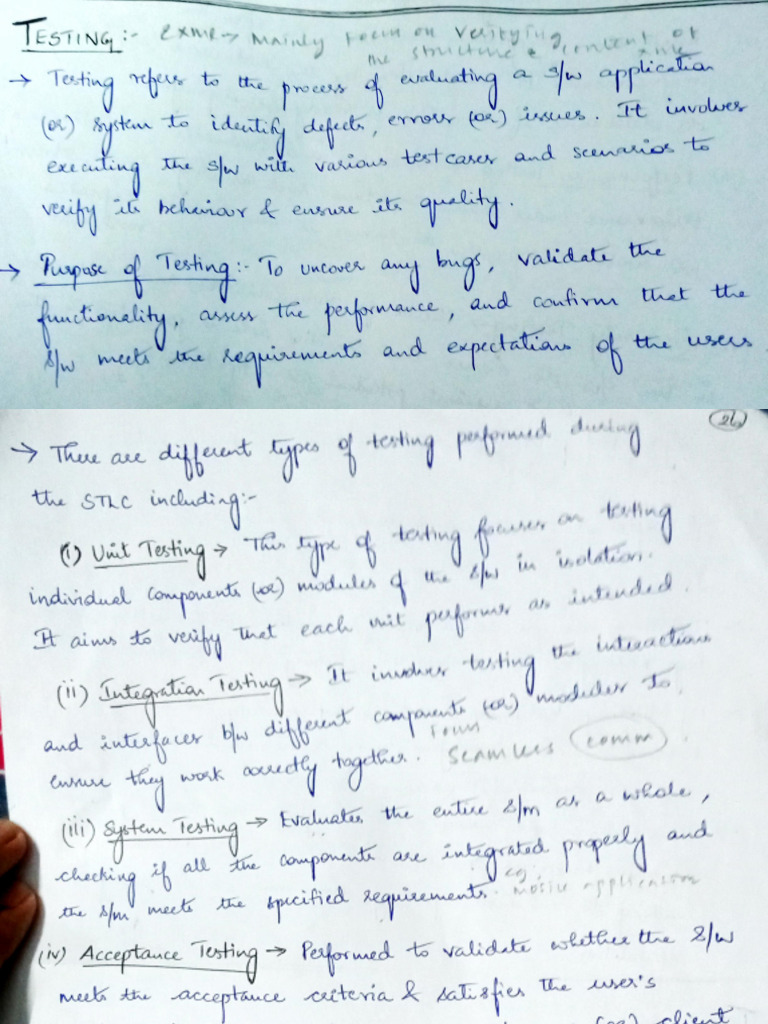 TESTING:- exmp→ Mainly Focus on verifying
the structure & content of
→ Testing refers to the process of evaluating a s/w application
(or) system to identify defects, errors (or) issues. It involves
executing the s/w with various test cases and scenarios to
verify its behaviour & ensure its quality.
→ Purpose of Testing:- To uncover any bugs, validate the
functionality, assess the performance, and confirm that the
s/w meets the requirements and expectations of the users
26
→ There are different types of testing performed during
the STLC including:-
(i) Unit Testing → This type of testing focuses on testing
individual components (or) modules of the s/w in isolation.
It aims to verify that each unit performs as intended.
(ii) Integration Testing → It involves testing the interactions
and interfaces b/w different components (or) modules to
ensure they work correctly together. Focus Seamless comm
(iii) System Testing → Evaluates the entire s/m as a whole,
checking if all the components are integrated properly and
the s/m meets the specified requirements. eg mobile application
(iv) Acceptance Testing → Performed to validate whether the s/w
meets the acceptance criteria & satisfies the user's
(or) client